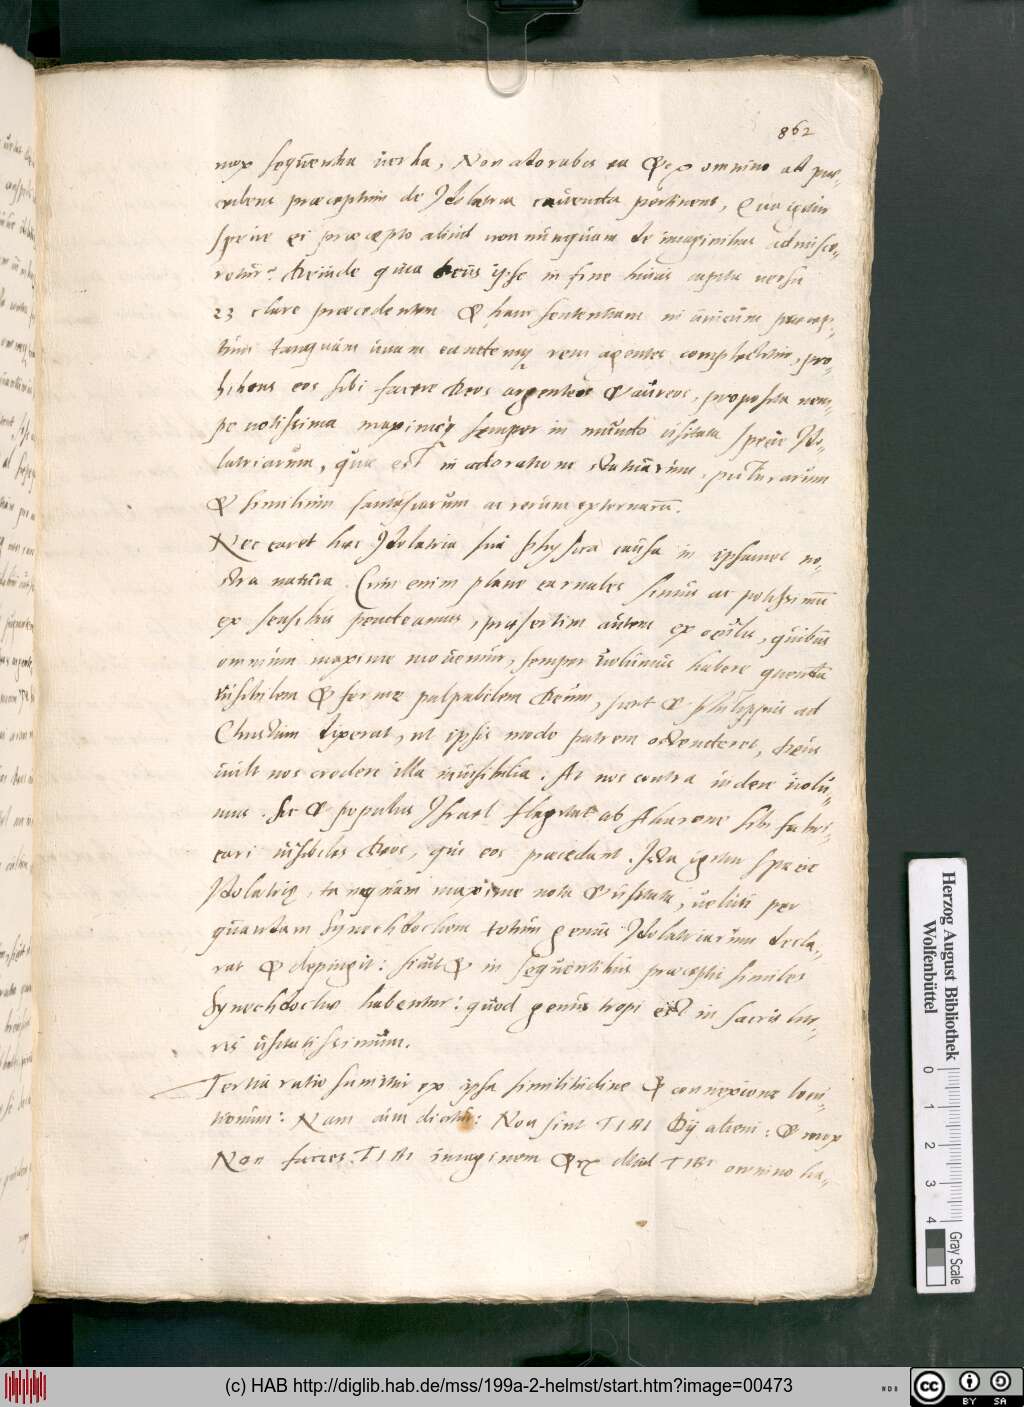 862
mox sequentia verba, Non adorabis ea &c omnino ad prae-
cedens praeceptum de Idolatria cavenda pertinent, Cur igitur
specie ei praecepto aliud non nunquam de imaginibus admisce-
retur? Deinde quia Deus ipse in fine huius capitis versu
23 clare praecedentem & hanc sententiam in unicum praecep-
tum tanquam unam eandemq rem agentes complectitur, pro-
hibens eos sibi facere Deos argenteos & aureos, proposita nem-
pe notissima maximeq semper in mundo usitata specie Ido-
latriarum, quae est in adoratione statuarum, picturarum
& similium fantasiarum ac rerum externarum.
Nec caret haec Idolatria sua Physica causa in ipsamet no-
stra natura. Cum enim plane carnales simus ac potissimum
ex sensibus pendeamus, praesertim autem ex oculis, quibus
omnium maxime movemur, semper volumus habere quendam
visibilem & ferme palpabilem Deum, sicut & Philippus ad
Christum dixerat, ut ipsis modo patrem ostenderet, Deus
vult nos credere illa invisibilia. At nos contra videre volu-
mus. Sic & populus Israel flagitat ab Aharone sibi fabri-
cari visibiles Deos, qui eos praecedant. Ista igitur specie
Idolatriae, tanquam maxime nota & usitata, veluti per
quandam Synechdochen totum genus Idolatriarum decla-
rat & depingit: sicut & in sequentibus praeceptis similes
Synechdochae habentur: quod genus tropi est in sacris lite-
ris usitatissimum.
Tertia ratio sumitur ex ipsa similitudine & connexione locu-
tionum: Nam cum dicitur: Non sint TIBI Dij alieni: & mox
Non facies TIBI imaginem &c illud TIBI omnino ha-
Herzog August Bibliothek
Wolfenbüttel
0 1 2 3 4
Gray Scale
(c) HAB http://diglib.hab.de/mss/199a-2-helmst/start.htm?image=00473
cc BY SA